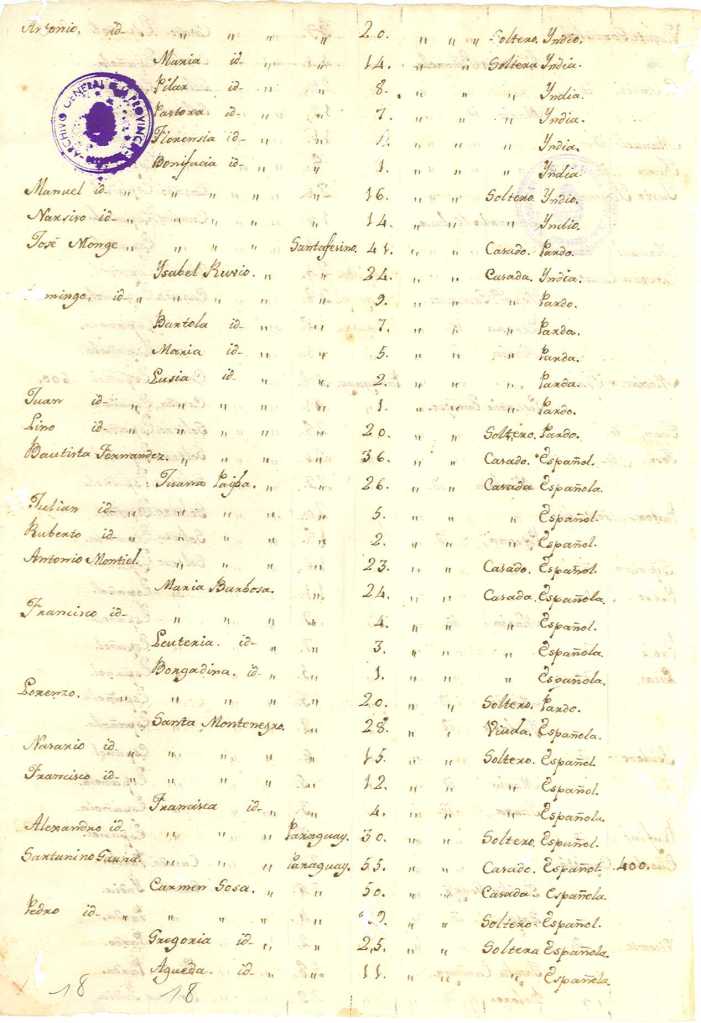 Antonio. id- „ „ „ „ 20. „ „ Soltero. Yndio.
Maria id- „ „ 14. „ „ Soltera Yndia.
Pilar id- „ „ 8. „ „ „ Yndia.
Pastora id- „ „ 7. „ „ „ Yndia.
Florensia id- „ „ „ „ „ Yndia.
Bonifacia id- „ „ 1. „ „ „ Yndia
ARCHIVO GENERAL DE LA PROVINCIA
Manuel id- „ „ „ „ 16. „ „ Soltero. Yndio.
Narsiso id- „ „ „ „ 14. „ „ „ Yndio.
José Monge „ „ „ Santafesino. 41. „ „ Casado. Pardo.
Ysabel Ruvio. „ „ 24. „ „ Casada. Yndia.
Domingo. id- „ „ „ „ 9. „ „ „ Pardo.
Bartola id- „ „ 7. „ „ „ Parda.
Maria id- „ „ 5. „ „ „ Parda.
Lusia id- „ „ 2. „ „ „ Parda.
Juan id- „ „ „ „ 1. „ „ „ Pardo.
Lino id- „ „ „ „ 20. „ „ Soltero. Pardo.
Bautista Fernandez. „ „ „ „ 36. „ „ Casado. Español.
Juana „ „ 26. „ „ Casada Española.
Julian id- „ „ „ „ 5. „ „ „ Español.
Ruberto id- „ „ „ „ 2. „ „ „ Español.
Antonio Montiel. „ „ „ „ 23. „ „ Casado. Español.
Maria Barbosa. „ „ 24. „ „ Casada. Española.
Francisco id- „ „ „ „ 4. „ „ „ Español.
Leuteria. id- „ „ 3. „ „ „ Española
Borgadina. id- „ „ 1. „ „ „ Española.
Lorenzo. „ „ „ „ 20. „ „ Soltero. Pardo.
Santa Montenegro. „ 28. „ „ Viuda. Española.
Nasario id- „ „ „ „ 15. „ „ Soltero. Español.
Francisco id- „ „ „ „ 12. „ „ „ Español.
Francisca id- „ „ 4. „ „ „ Española.
Alexandro id- „ „ „ Paraguay. 30. „ „ Soltero. Español.
Sarturino Gauna. „ „ „ Paraguay. 55. „ „ Casado. Español. 400.
Carmen Sosa. „ „ 50. „ „ Casada. Española.
Pedro id- „ „ „ „ „ „ Soltero. Español.
Gregoria id- „ „ 25. „ „ Soltera Española.
Agueda. id- „ „ 11. „ „ „ Española.
18 18